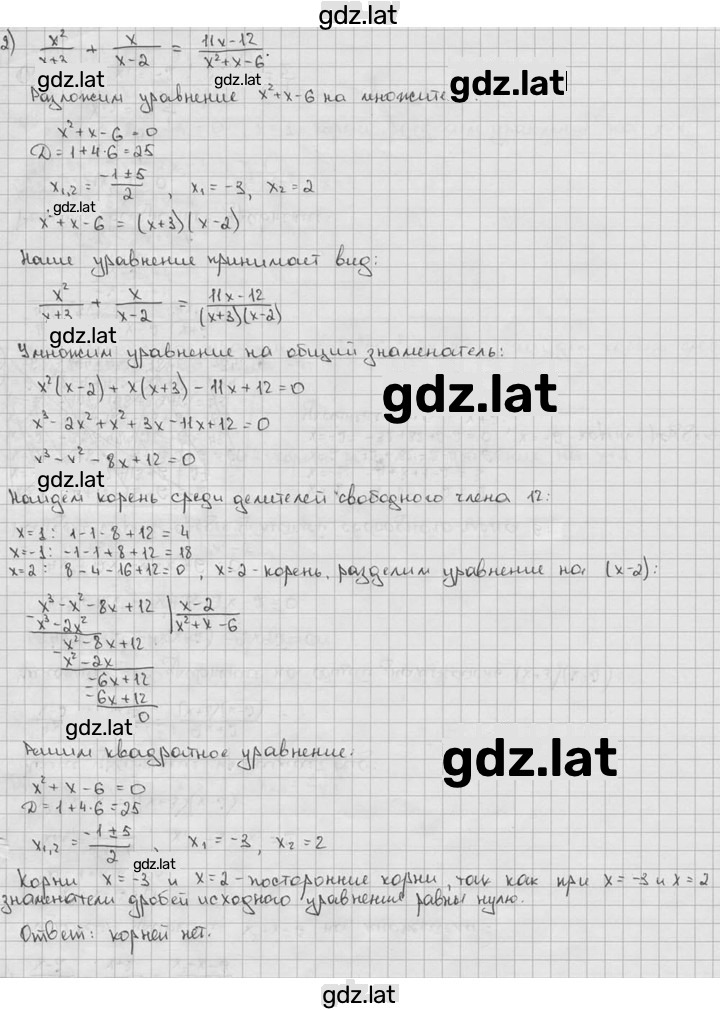 gdz.lat
2) x²/(x+3) + x/(x-2) = (11x-12)/(x²+x-6).
gdz.lat gdz.lat gdz.lat
Разложим уравнение x²+x-6 на множите
x²+x-6=0
D=1+4·6=25
x₁,₂ = (-1±5)/2, x₁=-3, x₂=2
gdz.lat
x²+x-6 = (x+3)(x-2)
Наше уравнение принимает вид:
x²/(x+3) + x/(x-2) = (11x-12)/((x+3)(x-2))
gdz.lat
Умножим уравнение на общий знаменатель:
x²(x-2) + x(x+3) - 11x+12=0
gdz.lat
x³-2x²+x²+3x-11x+12=0
x³-x²-8x+12=0
gdz.lat
Найдём корень среди делителей свободного члена 12:
x=1: 1-1-8+12=4
x=-1: -1-1+8+12=18
x=2: 8-4-16+12=0, x=2-корень, разделим уравнение на (x-2):
x³-x²-8x+12 | x-2
-x³-2x² x²+x-6
x²-8x+12
-x²-2x
-6x+12
-6x+12
0
gdz.lat
Решим квадратное уравнение:
gdz.lat
x²+x-6=0
D=1+4·6=25
x₁,₂ = (-1±5)/2, x₁=-3, x₂=2
gdz.lat
Корни x=-3 и x=2-посторонние корни, так как при x=-3 и x=2
знаменатели дробей исходного уравнения равны нулю.
Ответ: корней нет.
gdz.lat